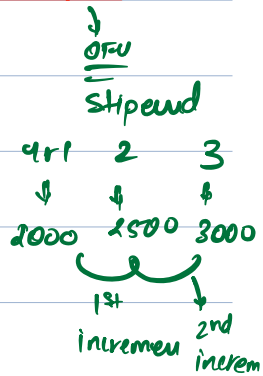 OFU
Stipend
yr1 2 3
2000 2500 3000
1st
incremen
2nd
increm